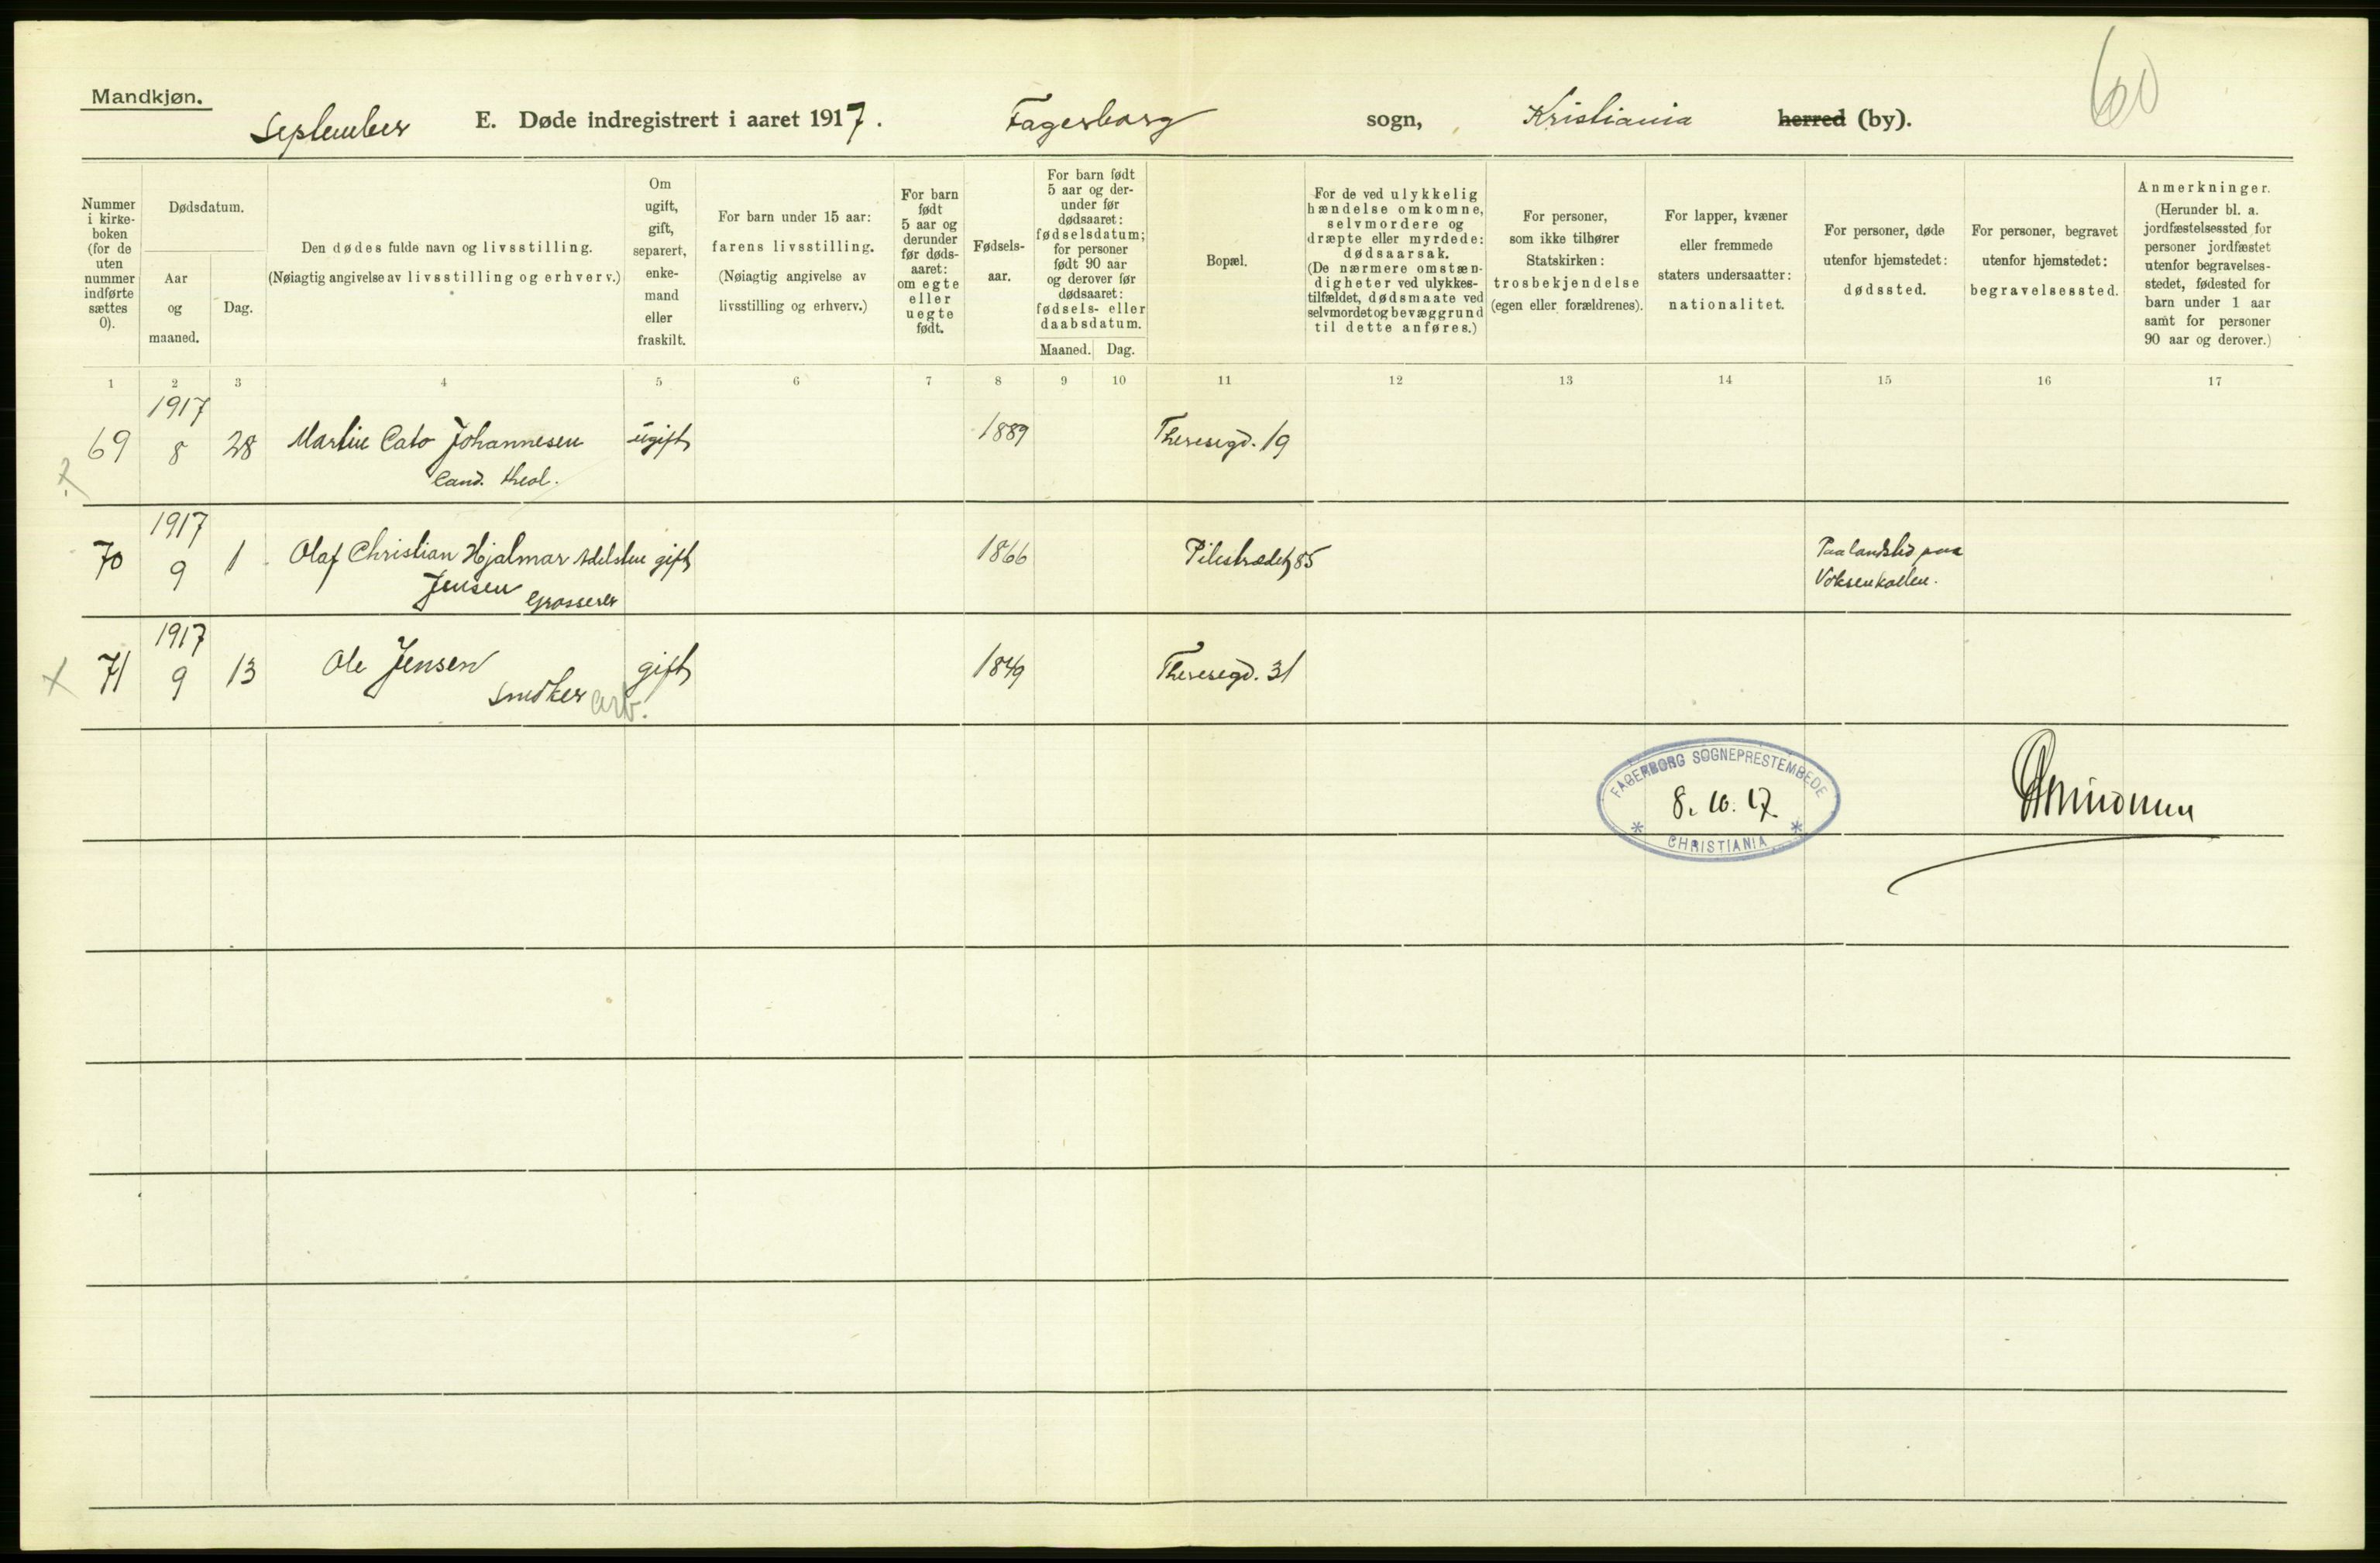 Mandkjøn.
September E. Døde indregistrert i aaret 1917. Fagerborg sogn, Kristiania herred (by).
60
Nummer
i kirke-
boken
(for de
uten
nummer
indførte
sættes
0).
Dødsdatum.
Aar
og
maaned.
Dag.
Den dødes fulde navn og livsstilling.
(Nøiagtig angivelse av livsstilling og erhverv.)
Om
ugift,
gift,
separert,
enke-
mand
eller
fraskilt.
For barn under 15 aar:
farens livsstilling.
(Nøiagtig angivelse av
livsstilling og erhverv.)
For barn
født
5 aar og
derunder
før døds-
aaret:
om egte
eller
uegte
født.
Fødsels-
aar.
For barn født
5 aar og der-
under før
dødsaaret:
fødselsdatum;
for personer
født 90 aar
og derover før
dødsaaret:
fødsels- eller
daabsdatum.
Maaned. Dag.
Bopæl.
For de ved ulykkelig
hændelse omkomne,
selvmordere og
dræpte eller myrdede:
dødsaarsak.
(De nærmere omstæn-
digheter ved ulykkes-
tilfældet, dødsmaate ved
selvmordet og bevæggrund
til dette anføres.)
For personer,
som ikke tilhører
Statskirken:
trosbekjendelse
(egen eller forældrenes).
For lapper, kvæner
eller fremmede
staters undersaatter:
nationalitet.
For personer, døde
utenfor hjemstedet:
dødssted.
For personer, begravet
utenfor hjemstedet:
begravelsessted.
Anmerkninger.
(Herunder bl. a.
jordfæstelsessted for
personer jordfæstet
utenfor begravelses-
stedet, fødested for
barn under 1 aar
samt for personer
90 aar og derover.)
1 2 3 4 5 6 7 8 9 10 11 12 13 14 15 16 17
1917
69 8 28 Martin Cato Johannesen ugift 1889 Theresegd. 19
Cand. theol.
1917
70 9 1 Olaf Christian Hjalmar Adelsten gift 1866 Pilestrædet 85 Paa landsted paa
Jensen Grosserer Voksenkollen.
1917
71 9 13 Ole Jensen gift 1849 Theresegd. 31
Snedker arb.
FAGERBORG SOGNEPRESTEMBEDE
8. 10. 17.
* CHRISTIANIA *